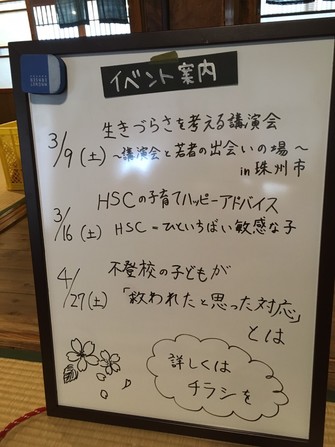 イベント案内
生きづらさを考える講演会
3/9(土) ～講演会と若者の出会いの場～
in 珠州市
HSCの子育てハッピーアドバイス
3/16(土) HSC=ひといちばい敏感な子
不登校の子どもが
4/27(土) 「救われたと思った対応」
とは
詳しくは
チラシを